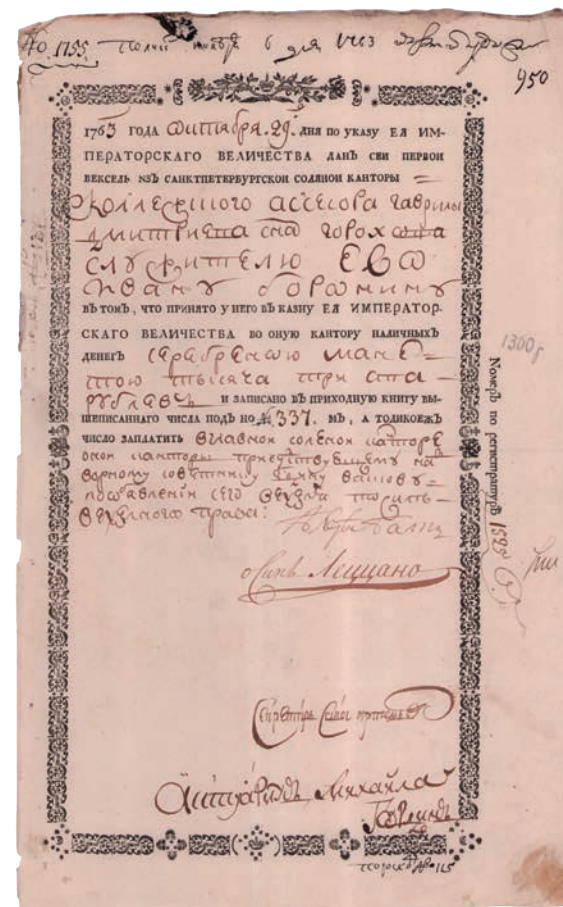 № 1755 ноябр 6 дня 1763
950
1763 ГОДА октября 29. ДНЯ ПО УКАЗУ ЕЯ ИМ-
ПЕРАТОРСКАГО ВЕЛИЧЕСТВА ДАНЪ СЕИ ПЕРВОИ
ВЕКСЕЛЬ ИЗЪ САНКТПЕТЕРБУРГСКОИ СОЛЯНОИ КАНТОРЫ
Коллежского ассесора гаврилы
дмитриева сна горохова
служителю ево
ивану
ВЪ ТОМЪ, ЧТО ПРИНЯТО У НЕГО ВЪ КАЗНУ ЕЯ ИМПЕРАТОР-
СКАГО ВЕЛИЧЕСТВА ВО ОНУЮ КАНТОРУ НАЛИЧНЫХЪ
ДЕНЕГЪ серебреною мане-
тою тысяча три ста
рублевъ И ЗАПИСАНО ВЪ ПРИХОДНУЮ КНИГУ ВЫ-
ШЕПИСАННАГО ЧИСЛА ПОДЪ НО № 337. МЪ, А ТОЛИКОЕЖЪ
ЧИСЛО ЗАПЛАТИТЬ в главной соленой канторе
оной канторы присутствующему на
ворному советнику
по объявлении сего векселя по силе
вексельного права:
осипъ Лецано
Секретарь
Актуариусъ Михайла
1300
Номеръ по регистратурѣ 1595
№ 115